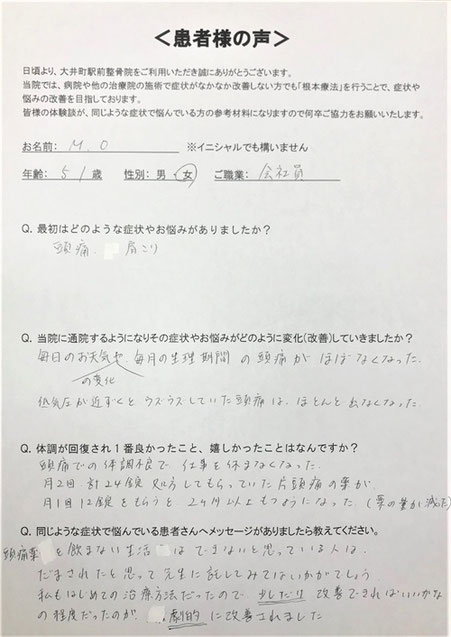 ＜患者様の声＞
日頃より、大井町駅前整骨院をご利用いただき誠にありがとうございます。
当院では、病院や他の治療院の施術で症状がなかなか改善しない方でも「根本療法」を行うことで、症状や
悩みの改善を目指しております。
皆様の体験談が、同じような症状で悩んでいる方の参考材料になりますので何卒ご協力をお願いいたします。
お名前： M.O ※イニシャルでも構いません
年齢： 51 歳 性別：男・女 ご職業： 会社員
Q. 最初はどのような症状やお悩みがありましたか？
頭痛、肩こり
Q. 当院に通院するようになりその症状やお悩みがどのように変化(改善)していきましたか？
毎日のお天気や、毎月の生理期間の頭痛がほぼなくなった。
の変化
低気圧が近ずくと、ウズウズしていた頭痛は、ほとんど出なくなった。
Q. 体調が回復され１番良かったこと、嬉しかったことはなんですか？
頭痛での体調不良で、仕事を休まなくなった。
月2回、計24錠 処方してもらっていた片頭痛の薬が、
月1回12錠をもらうと、2ヶ月以上もつようになった。(薬の量が減った)
Q. 同じような症状で悩んでいる患者さんへメッセージがありましたら教えてください。
頭痛薬を飲まない生活はできないと思っている人は、
だまされたと思って先生に託してみてはいかがでしょう。
私もはじめての治療方法だったので、少しだけ改善できればいいかな
の程度だったのが、劇的に改善されました